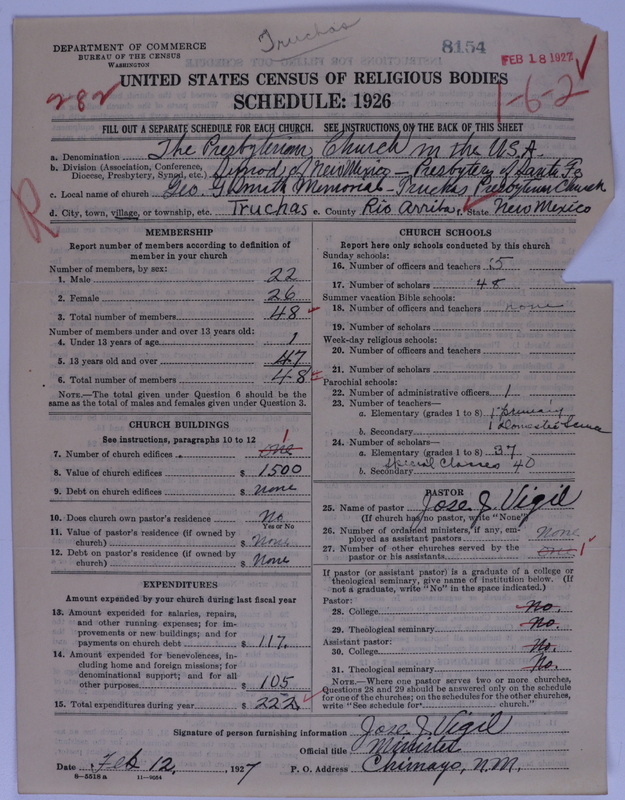 Truchas
DEPARTMENT OF COMMERCE
BUREAU OF THE CENSUS
WASHINGTON
8154
FEB 18 1927
UNITED STATES CENSUS OF RELIGIOUS BODIES
282
SCHEDULE: 1926
1-6-2
FILL OUT A SEPARATE SCHEDULE FOR EACH CHURCH. SEE INSTRUCTIONS ON THE BACK OF THIS SHEET
a. Denomination The Presbyterian Church in the U.S.A.
b. Division (Association, Conference, Diocese, Presbytery, Synod, etc.) Synod of New Mexico - Presbytery of Santa Fe
c. Local name of church Geo. G. Smith Memorial - Truchas Presbyterian Church
d. City, town, village, or township, etc. Truchas e. County Rio Arriba f. State New Mexico
MEMBERSHIP
Report number of members according to definition of
member in your church
Number of members, by sex:
1. Male 22
2. Female 26
3. Total number of members 48
Number of members under and over 13 years old:
4. Under 13 years of age 1
5. 13 years old and over 47
6. Total number of members 48
NOTE.—The total given under Question 6 should be
same as the total of males and females given under Question 3.
CHURCH BUILDINGS
See instructions, paragraphs 10 to 12
7. Number of church edifices one 1
8. Value of church edifices $ 1500
9. Debt on church edifices $ none
10. Does church own pastor's residence No
Yes or No
11. Value of pastor's residence (if owned by
church) $ None
12. Debt on pastor's residence (if owned by
church) $ None
EXPENDITURES
Amount expended by your church during last fiscal year
13. Amount expended for salaries, repairs,
and other running expenses; for im-
provements or new buildings; and for
payments on church debt $ 117.
14. Amount expended for benevolences, in-
cluding home and foreign missions; for
denominational support; and for all
other purposes $ 105
15. Total expenditures during year $ 222
CHURCH SCHOOLS
Report here only schools conducted by this church
Sunday schools:
16. Number of officers and teachers 5
17. Number of scholars 48
Summer vacation Bible schools:
18. Number of officers and teachers none
19. Number of scholars
Week-day religious schools:
20. Number of officers and teachers
21. Number of scholars
Parochial schools:
22. Number of administrative officers 1
23. Number of teachers—
a. Elementary (grades 1 to 8) 1 primary
b. Secondary 1 Domestic
24. Number of scholars—
a. Elementary (grades 1 to 8) 37
b. Secondary Special Classes 40
PASTOR
25. Name of pastor Jose J. Vigil
(If church has no pastor, write "None")
26. Number of ordained ministers, if any, em-
ployed as assistant pastors None
27. Number of other churches served by the
pastor or his assistants one 1
If pastor (or assistant pastor) is a graduate of a college or
theological seminary, give name of institution below. (If
not a graduate, write "No" in the space indicated.)
Pastor:
28. College No.
29. Theological seminary No.
Assistant pastor:
30. College No.
31. Theological seminary No.
NOTE.—Where one pastor serves two or more churches,
Questions 28 and 29 should be answered only on the schedule
for one of the churches; on the schedules for the other churches,
write "See schedule for church."
Signature of person furnishing information Jose J. Vigil
Official title Minister
Date Feb 12, 1927 P. O. Address Chimayo, N.M.
8-5518 a 11-9054